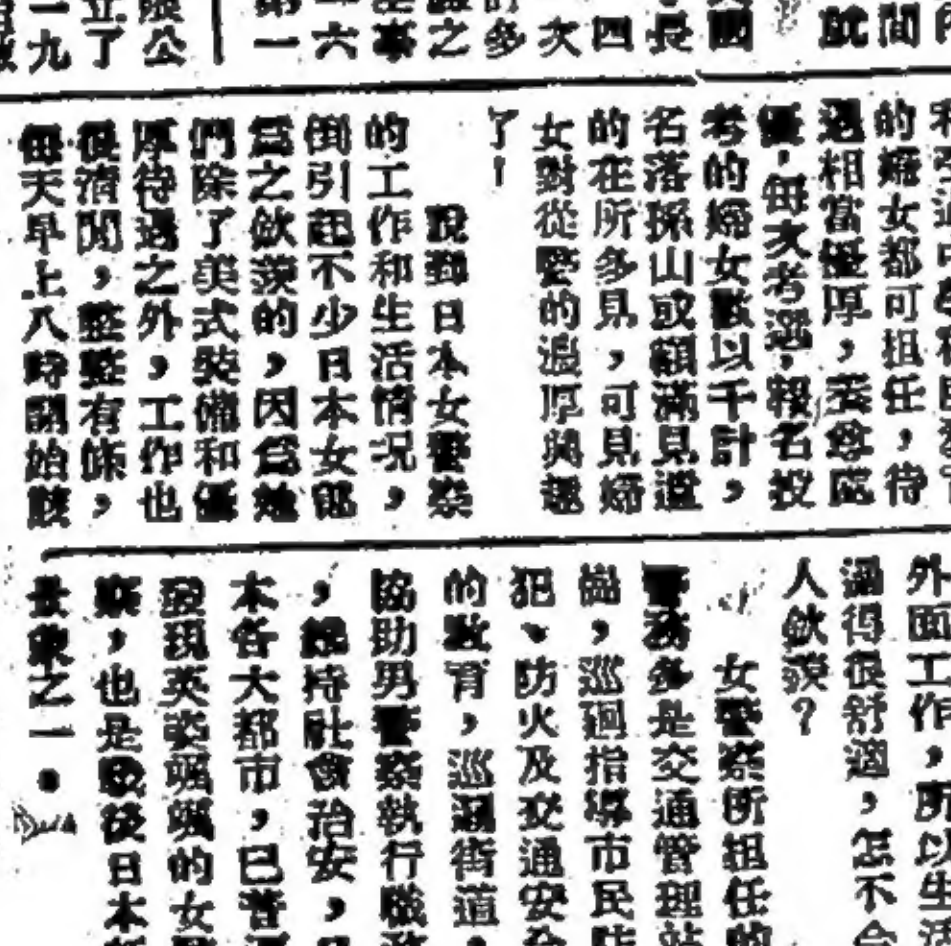 就
間
國
長
四
次
多
之
事
六
第一
公
立了
一九
的女都可担任，待
過相當優厚，委應
優，每次考選，報名投
考的婦女數以千計，
名落孫山或額滿見遺
的在所多見，可見婦
女對從警的過厚興趣
了！
說到日本女警察
的工作和生活情況，
倒引起不少日本女郎
爲之歆羨的，因爲她
們除了美式裝備和優
厚待遇之外，工作也
很清閒，整整有條，
每天早上八時開始該
外面工作，所以生活
過得很舒適，怎不令
人歆羨？
女警察所担任的
警務多是交通管理站
崗，巡迴指導市民防
犯、防火及交通安全
的教育，巡邏街道，
協助男警察執行職務
，維持社會治安，
本各大都市，已普遍
發現英姿颯颯的女
察，也是戰後日本
景象之一。